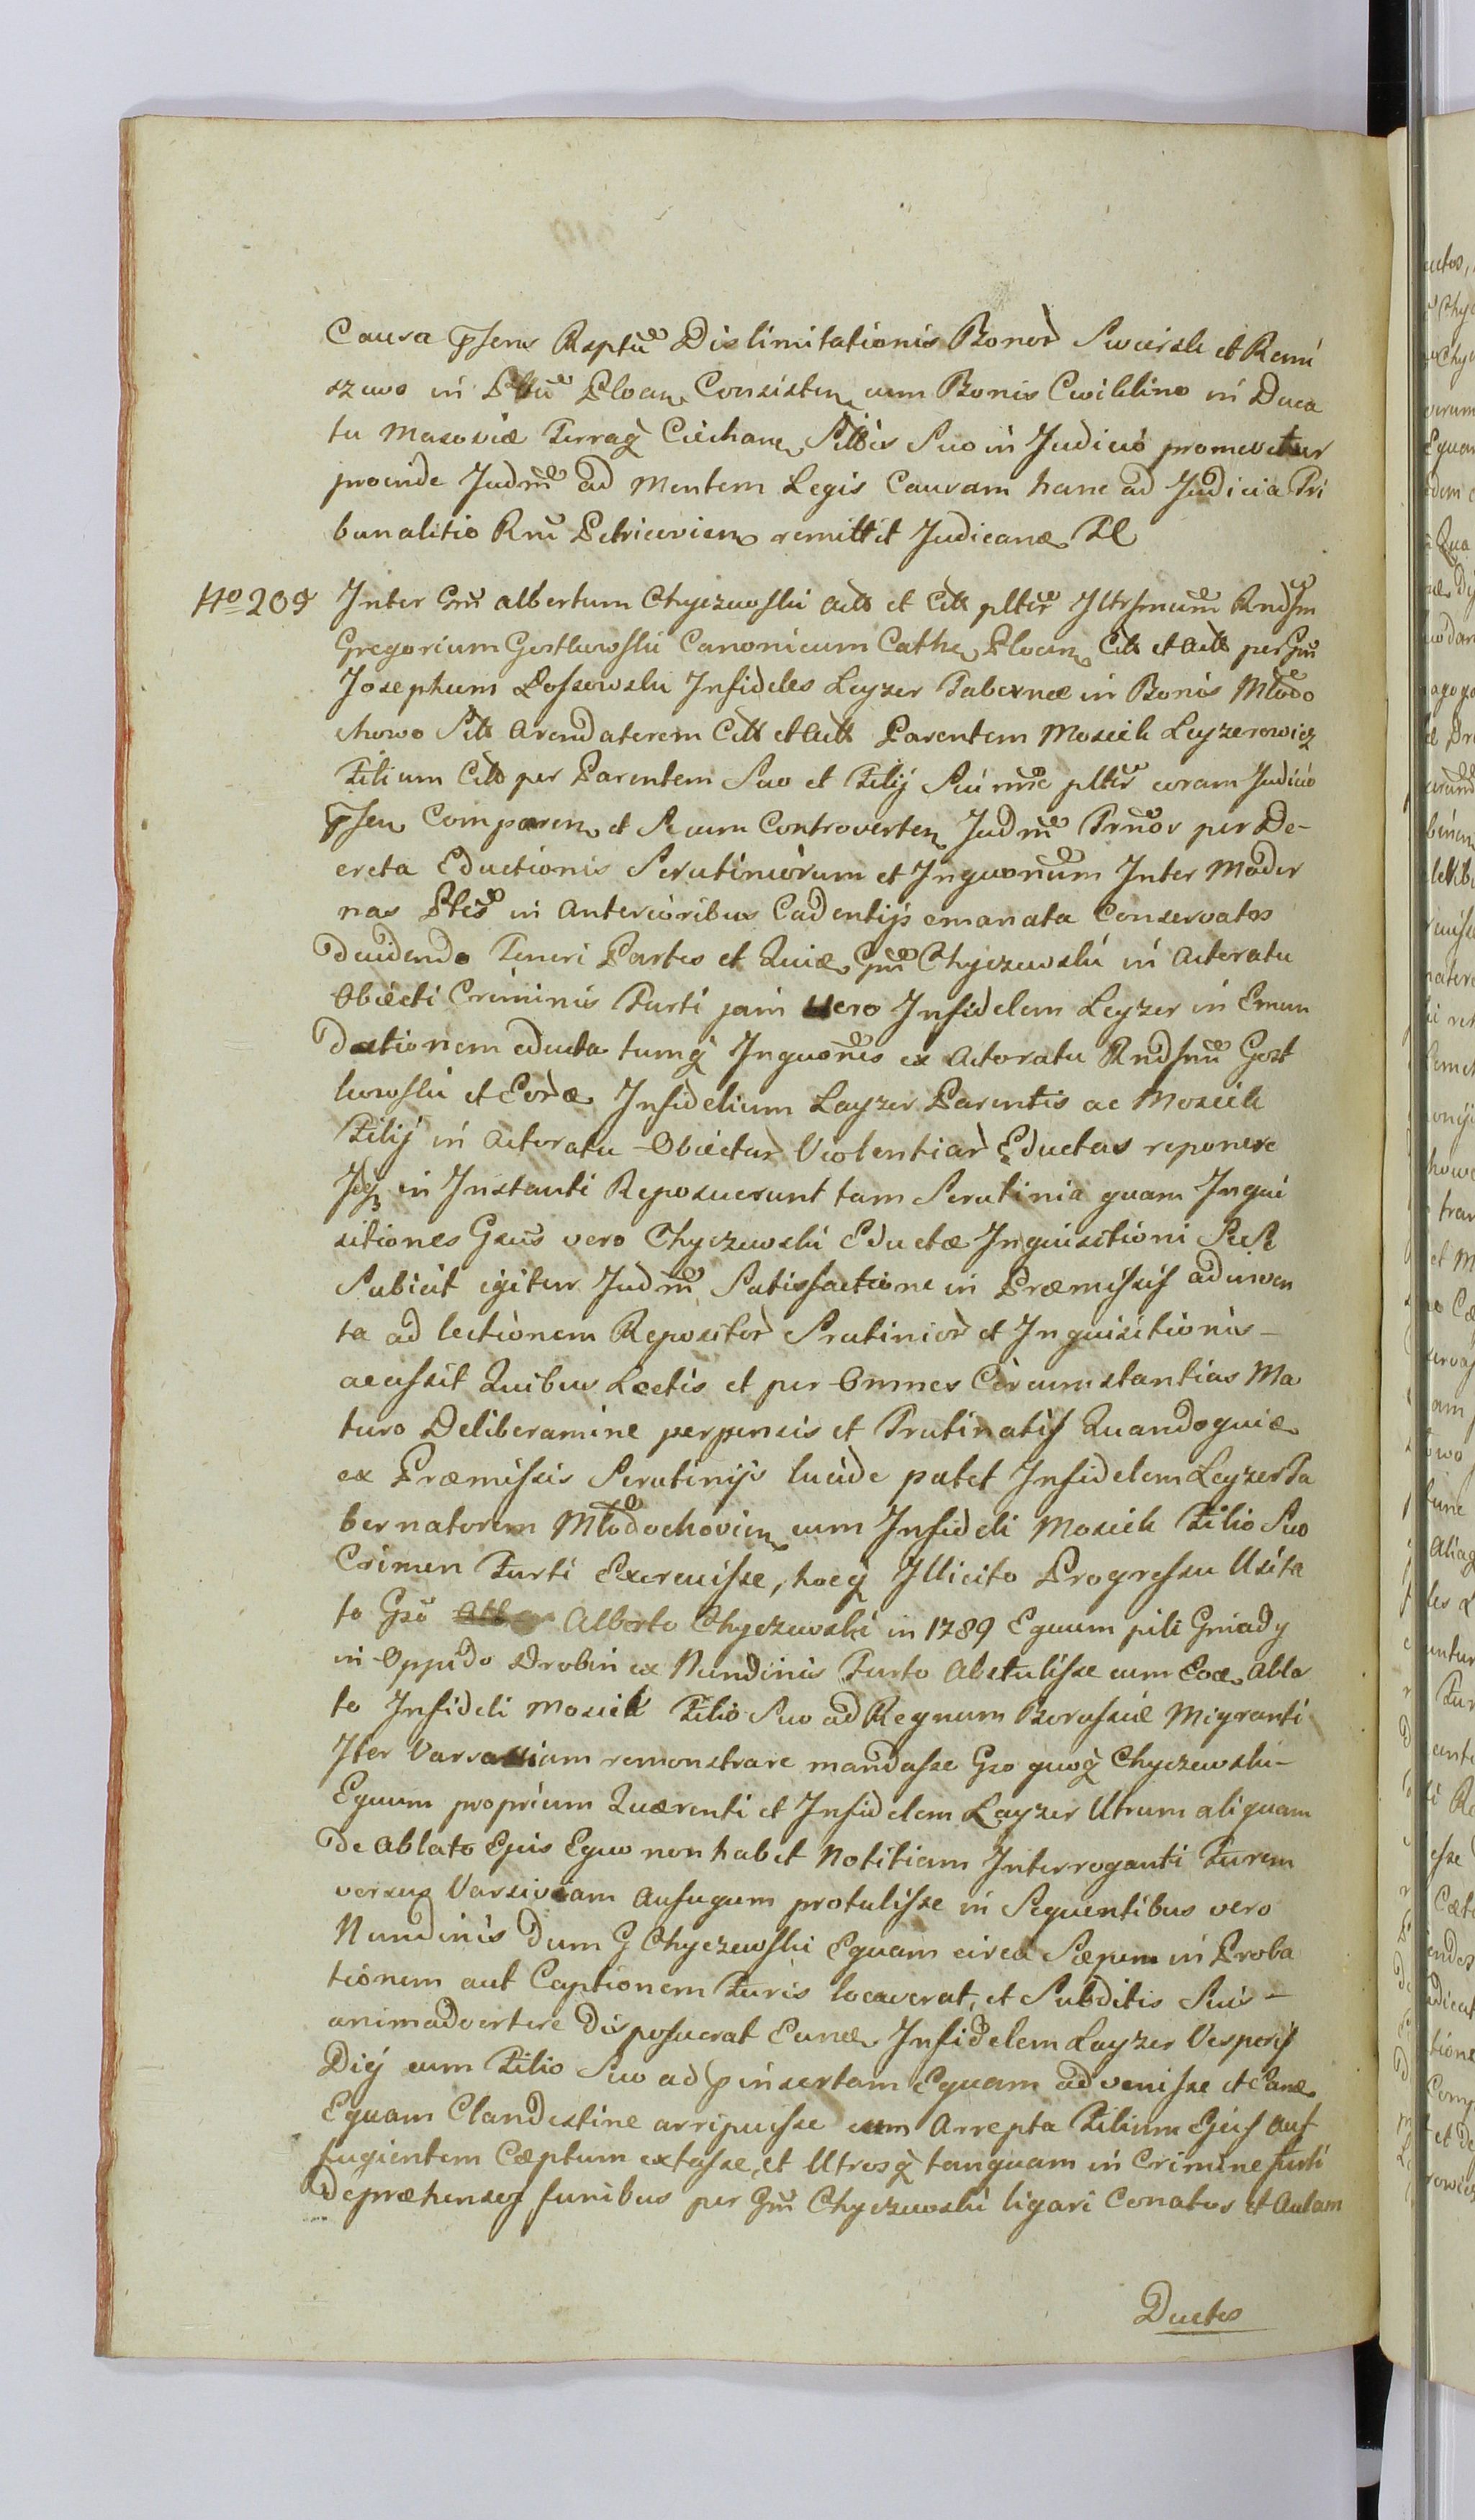 Causa pſens Rsptũ Dislimitationis Bonor̀ Swiersk et Remi
szewo in Pttũ Plocen Consisten cum Bonis Cwiklino in Duca
tu Masoviæ Terraq̀ Ciechan Sittis Suo in Judicio promovetur
proinde Judm̃ ad Mentem Legis Causam hanc ad Judicia Tri
bunalitio Rni Petricovien remittit Judicanæ Pl
No 209 Inter Gñ albertum Chyczewſki Actt et Citt plter Illrſmum Rndſm
Gregorium Gostkowſki Canonicum Cathe Plocen Citt et Actt per Gñ
Josephum Loſsowski Infideles Leyzer Tabernæ in Bonis Młodo
chowo Sitt Arendatorem Citt et Actt Parentem Mosiek Leyzerowicz
Filium Citt per Parentem Suo et Filij Sui nñe pltir coram Judicio
pſen Comparen et Secum Controverten Judm̃ Prñor per De-
creta Eductionis Scrutiniorum et Inquonũm Inter Moder
nas Ptes in Anterioribus Cadentijs emanata Conservatos
decidendo Teneri Partes et Quiæ Gm̃ Chyczewski in Actoratu
Obiecti Criminis Furti jam Vero Infidelem Leyzer in Emun
dationem educta tumq̀ Inquoñes ex Actoratu Rndſmi Gost
kowſki et Eor̀æ Infidelium Layzer Parentis ac Mosiek
Filij in Actoratu Obiectar̀ Violentiar̀ Eductas reponere
Iiq in Instanti Reposuerunt tam Scrutinia quam Inqui
sitiones Gsus vero Chyczewski Eductæ Inquisitioni Se
Subicit igitur Judm̃ Satisfactione in Præmiſsis adinven
ta ad lectionem Repositor̀ Scrutinior̀ et Inquisitionis-
acceſsit Quibus Lectis et per Omnes Circumstantias Ma
turo Deliberamine perpensis et Trutinatiſ Quandoquiæ
ex Præmiſsis Scrutinijs lucide patet Infidelem Leyzer Ta
bernatorem Młodochovien cum Infideli Mosiek Filio Suo
Crimen Furti Exercuiſse, hocq̀ Illicito Progreſsu Usita
to Gso Alberto Chyczewski in 1789 Equum pili Gniady
in Oppido Drobin ex Nundinis Furto Abstuliſse cum Eoæ Abla
to Infideli Mosiek Filio Suo ad Regnum Boruſsiæ Migranti
Iter Varsaviam remonstrare mandaſse Gso quoq̀ Chyczewski-
Equum proprium Quærenti et Infidelem Layzer Utrum aliquam
de Ablato Ejus Equo non habet Notitiam Interroganti Furem
versus Varsiviam Aufugum protuliſse in Sequentibus vero
Nundinis dum G Chyczewſki Equam circa Sæpem in Proba
tionem aut Captionem Furis locaverat, et Subditis Suis-
animadvertere disposuerat Eunæ Infidelem Layzer Vesperiſ
Dij cum Filio Suo ad p insertam Equam advenisse et Eanæ
Equam Clandestine arripuiſse cum Arrepta Filium Ejus Auf
fugientem Cæptum extaſse, et Utrosq̀ tanquam in Crimine furti
depræhensos funibus per Gm̃ Chyczewski ligari Conatos et Aulam
Ductos